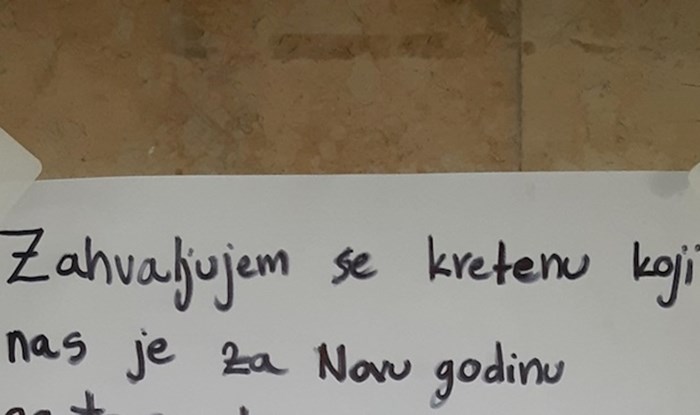 Zahvaljujem se kretenu koji
nas je za Novu godinu